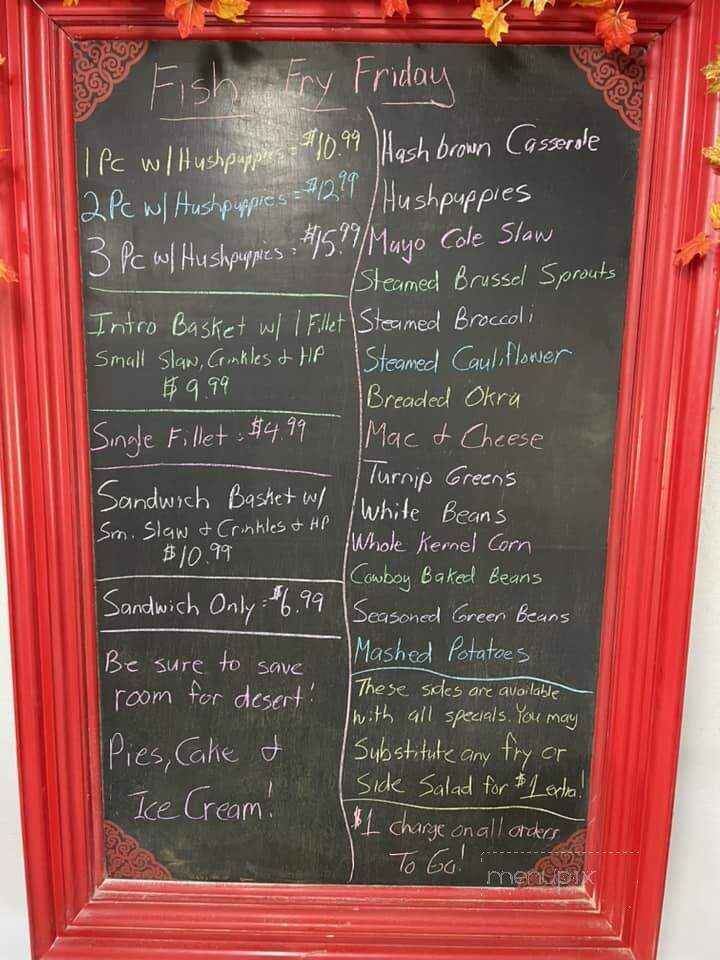 Fish Fry Friday
1 Pc w/ Hushpuppies = $10.99
2 Pc w/ Hushpuppies = $12.99
3 Pc w/ Hushpuppies = $15.99
Intro Basket w/ 1 Fillet
Small Slaw, Crinkles & HP
$9.99
Single Fillet = $4.99
Sandwich Basket w/
Sm. Slaw & Crinkles & HP
$10.99
Sandwich Only = $6.99
Be sure to save
room for desert!
Pies, Cake &
Ice Cream!
Hashbrown Casserole
Hushpuppies
Mayo Cole Slaw
Steamed Brussel Sprouts
Steamed Broccoli
Steamed Cauliflower
Breaded Okra
Mac & Cheese
Turnip Greens
White Beans
Whole Kernel Corn
Cowboy Baked Beans
Seasoned Green Beans
Mashed Potatoes
These sides are available
with all specials. You may
Substitute any fry or
Side Salad for $1 extra!
$1 charge on all orders
To Go!
menupix